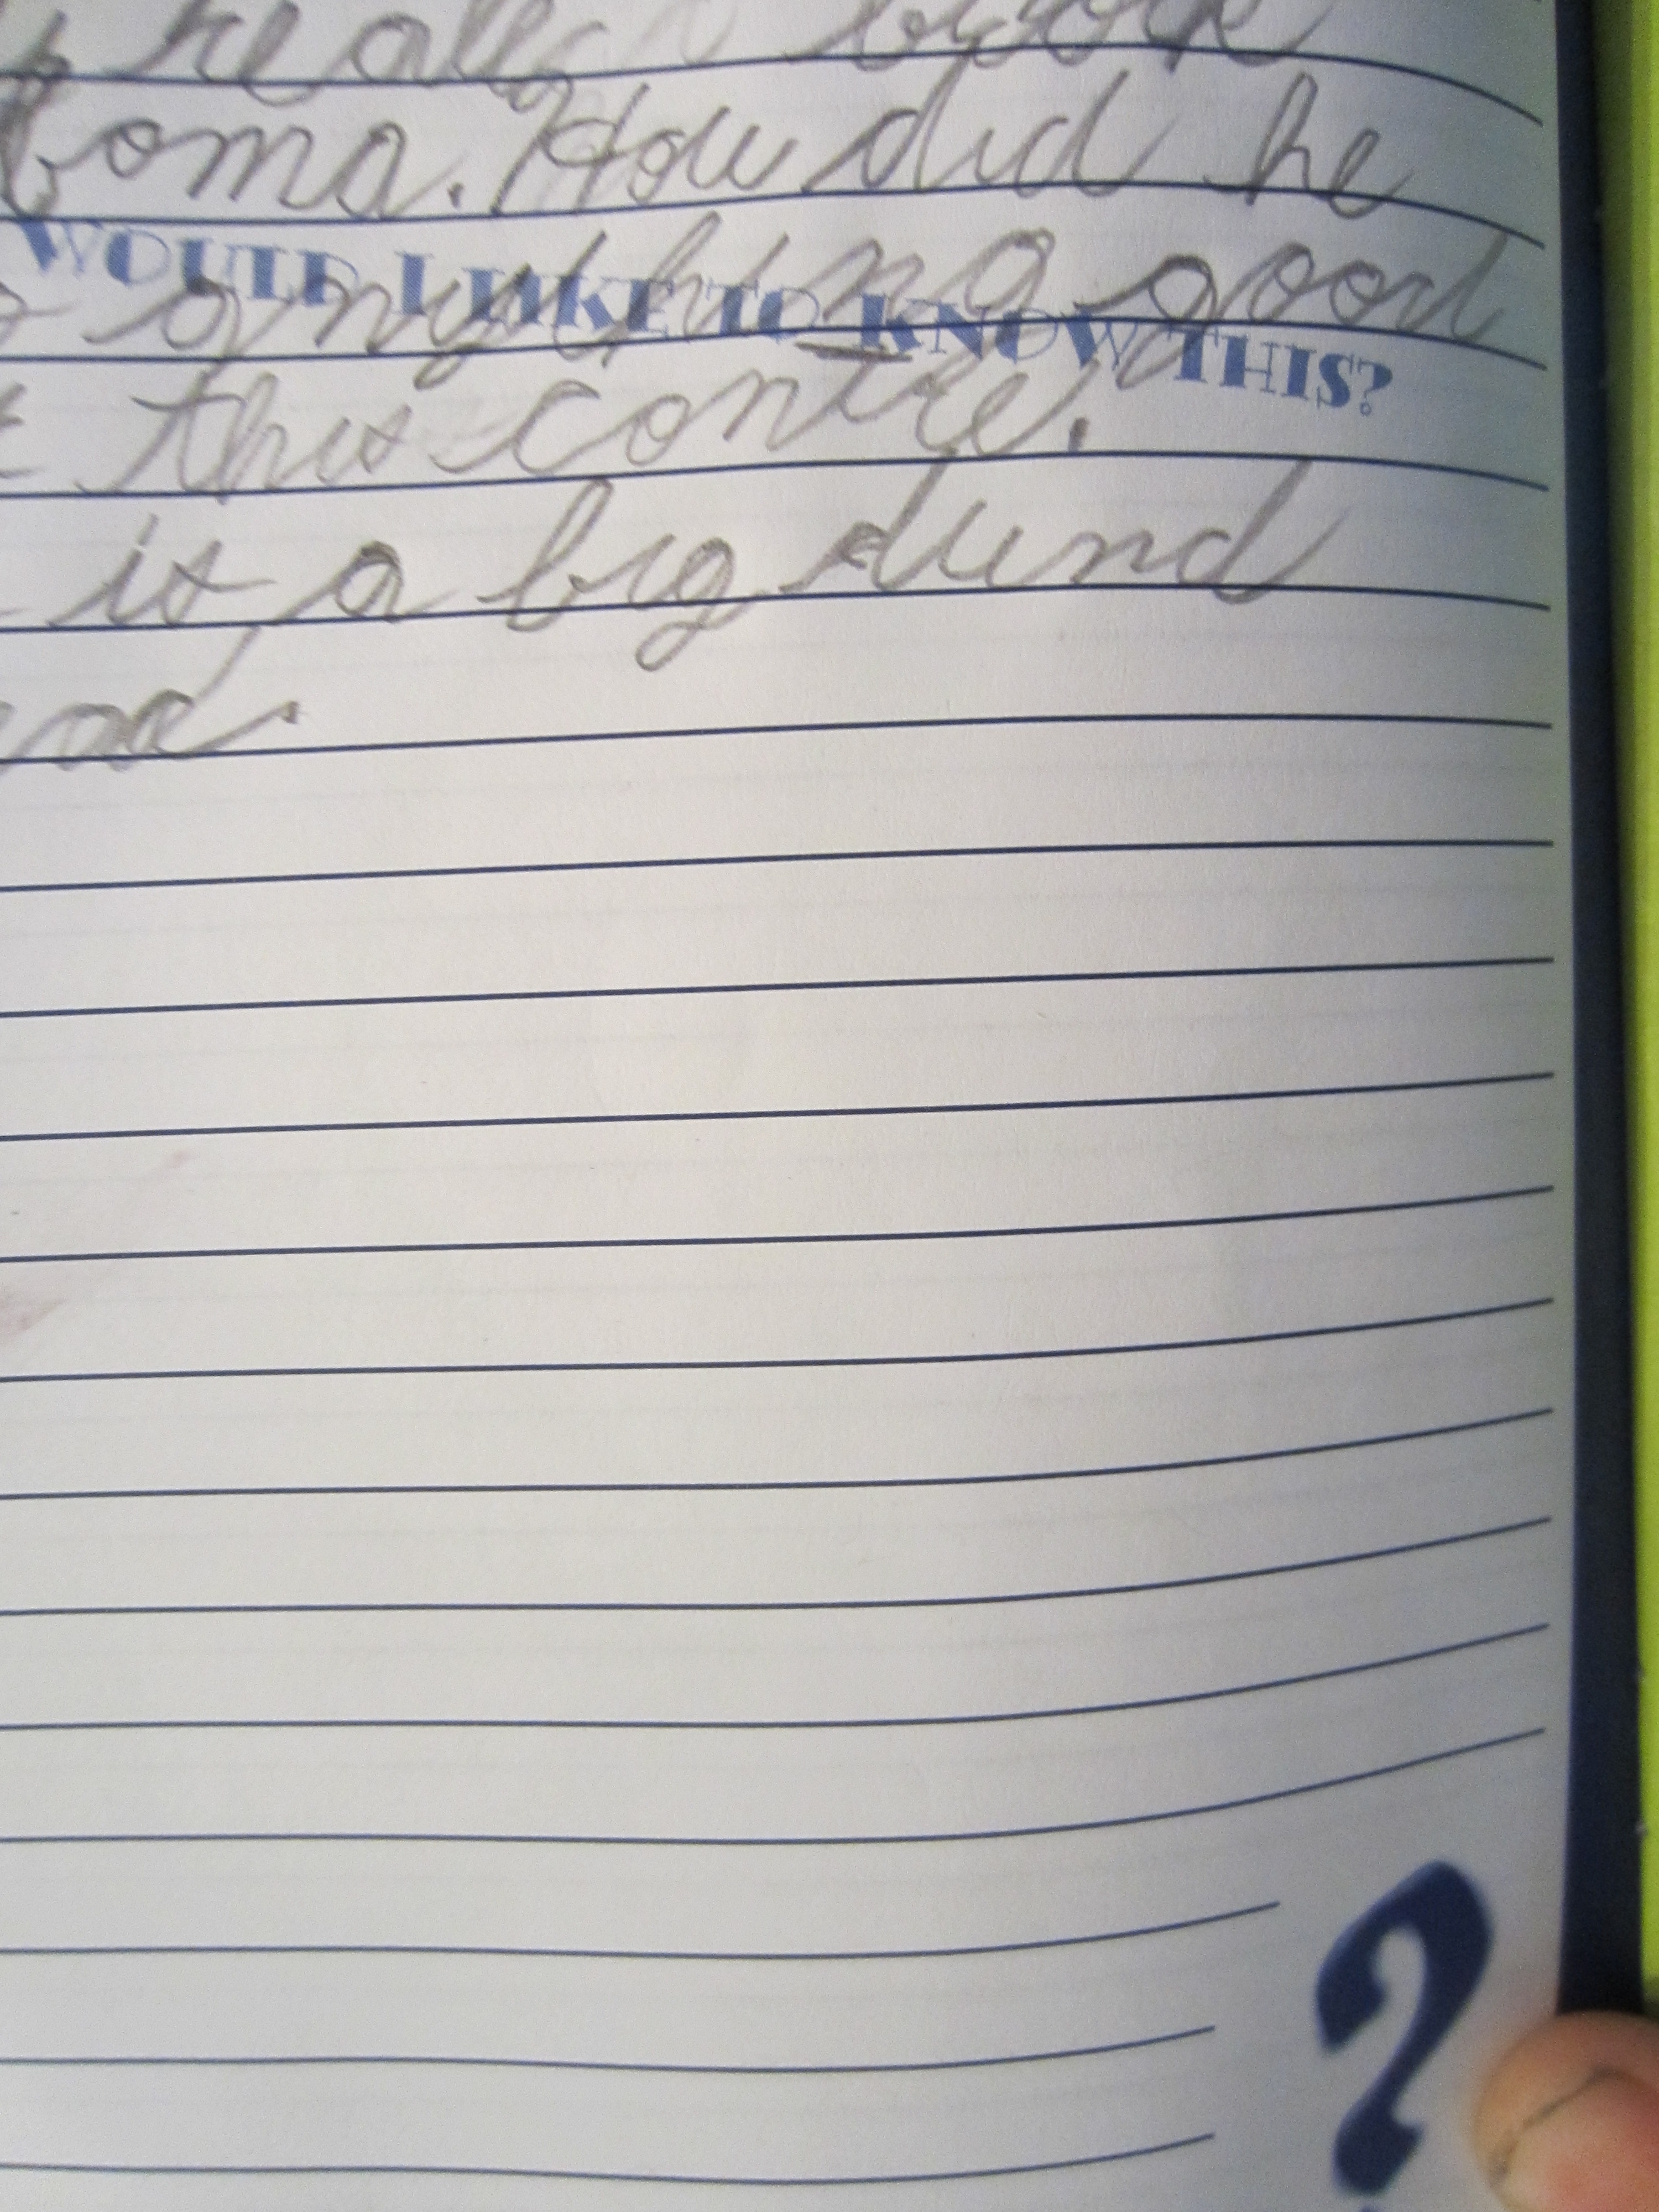 really
boma. How did he
WOULD I LIKE TO KNOW THIS?
anything good
this contre.
is a big dund